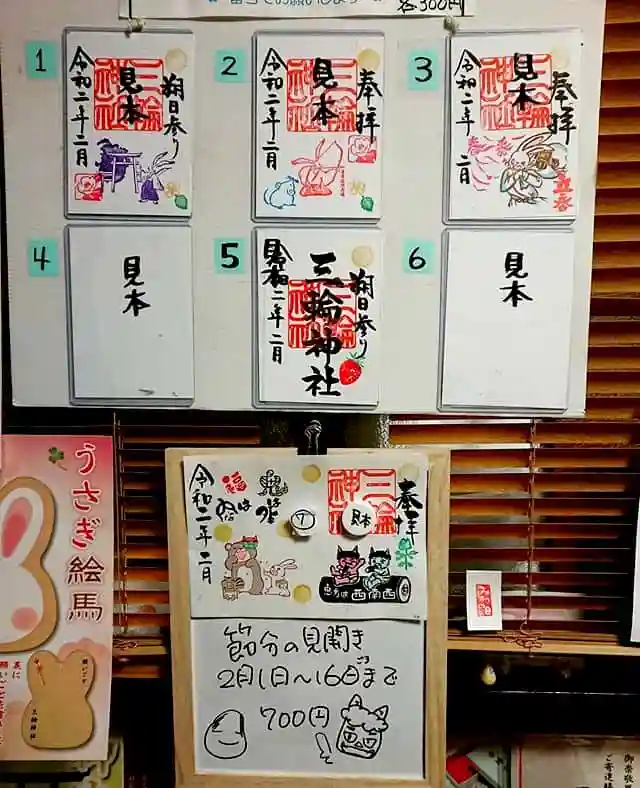 各300円
1
令和二年二月
見本
三輪神社
朔日参り
2
令和二年二月
見本
三輪神社
奉拝
3
令和二年 二月
見本
三輪神社
奉拝
4
見本
5
見本
令和二年 二月
三輪神社
朔日参り
6
見本
うさぎ絵馬
三輪神社
令和二年二月
福は
鬼は
7
見本
三輪神社
奉拝
恵方は西南西
節分の見開き
2月1日〜16日まで
700円
御崇敬
ご寄進